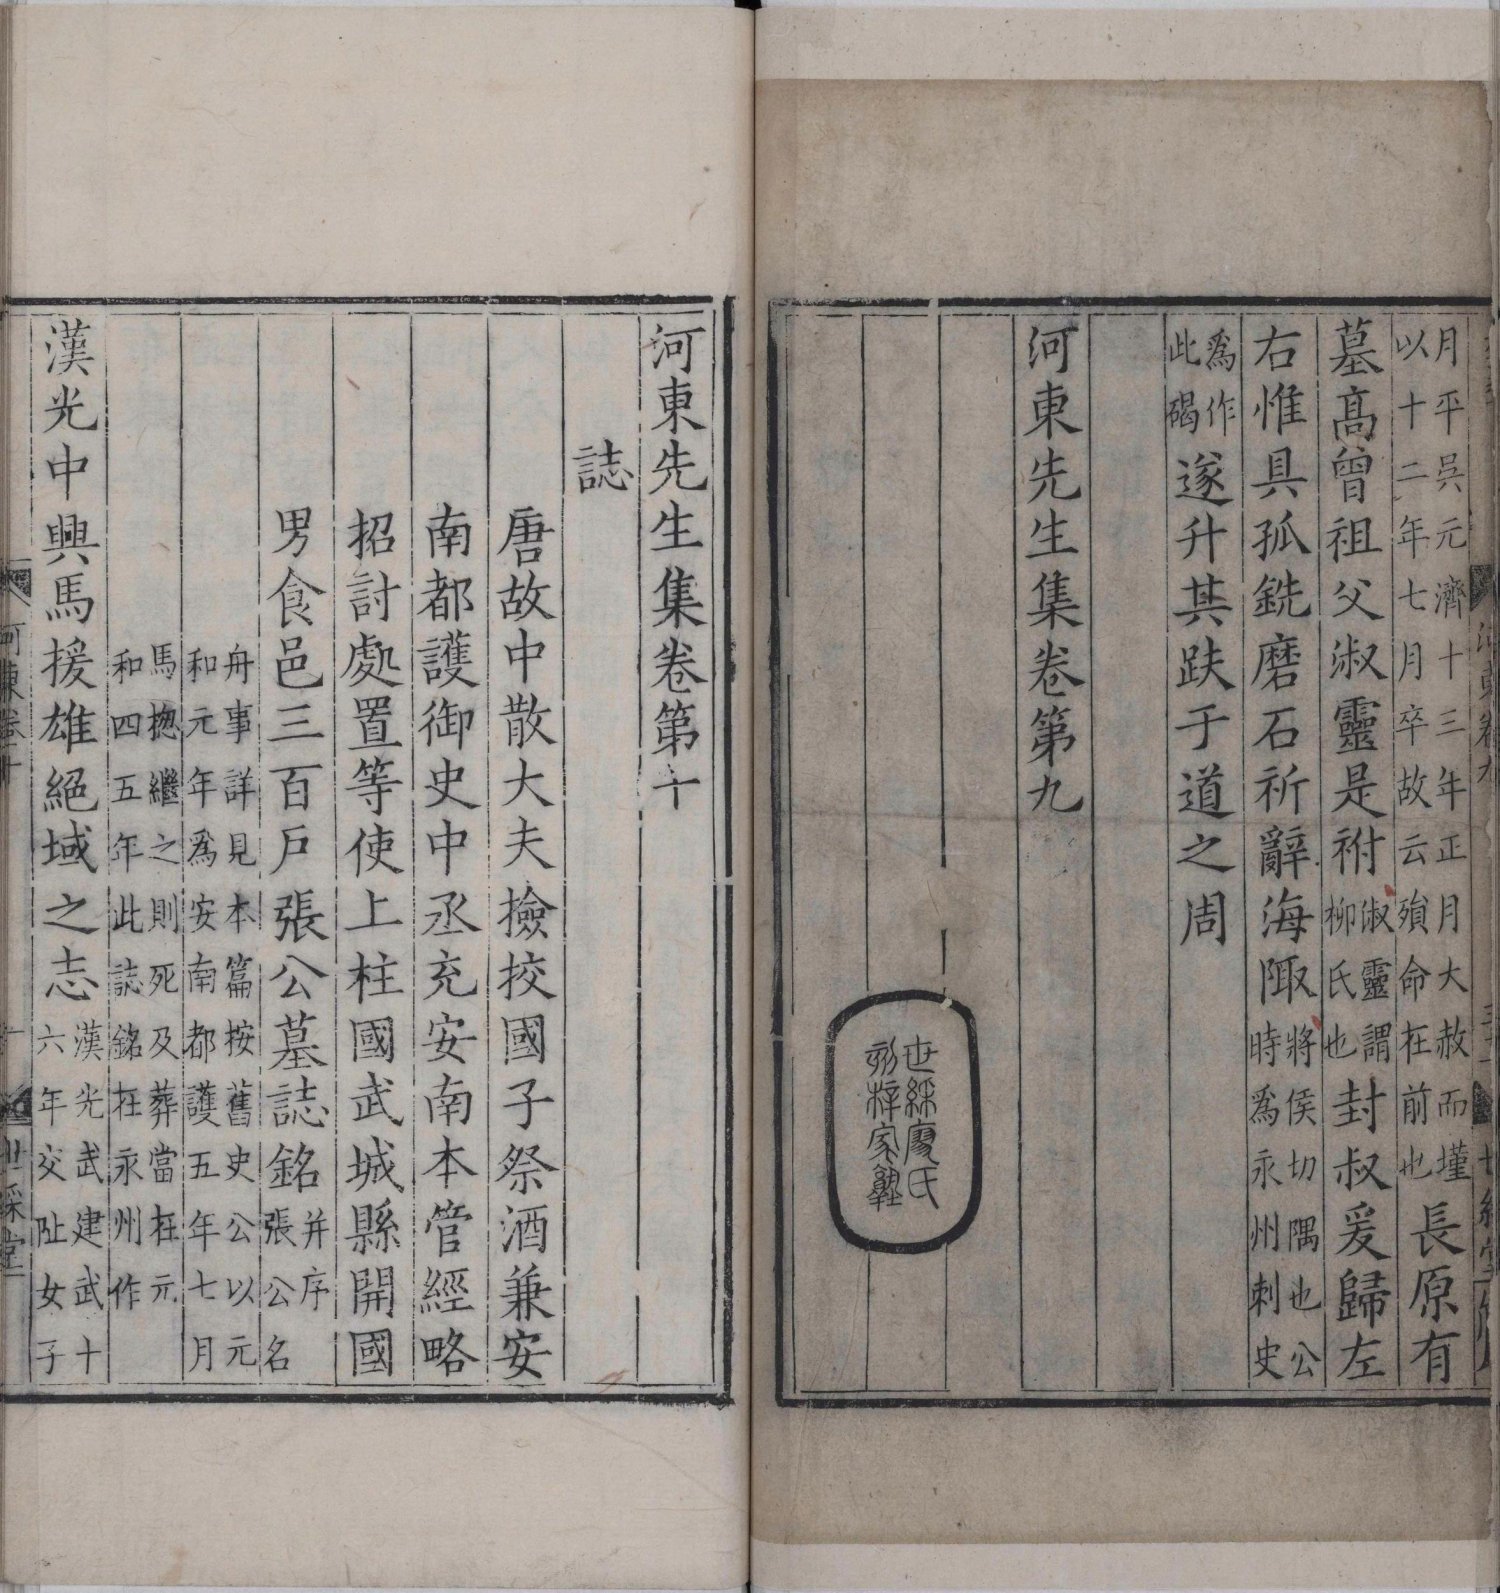 月平吳元濟十三年正月大赦而墐
以十二年七月卒故云殞命在前也
長原有
墓高曾祖父淑靈是祔
淑靈謂
柳氏也
封叔爰歸左
右惟具孤銑磨石祈辭海陬
將侯切隅也公
時爲永州刺史
爲作
此碣
遂升其趺于道之周
河東先生集卷第九
世綵廖氏
刻梓家塾
河東先生集卷第十
誌
唐故中散大夫撿挍國子祭酒兼安
南都護御史中丞充安南本管經略
招討處置等使上柱國武城縣開國
男食邑三百户張公墓誌銘
并序
張公名
舟事詳見本篇按舊史公以元
和元年爲安南都護五年七月
馬揔繼之則死及葬當在元
和四五年此誌銘在永州作
漢光中興馬援雄絕域之志
漢光武建武十
六年交阯女子
河東卷十
世綵堂